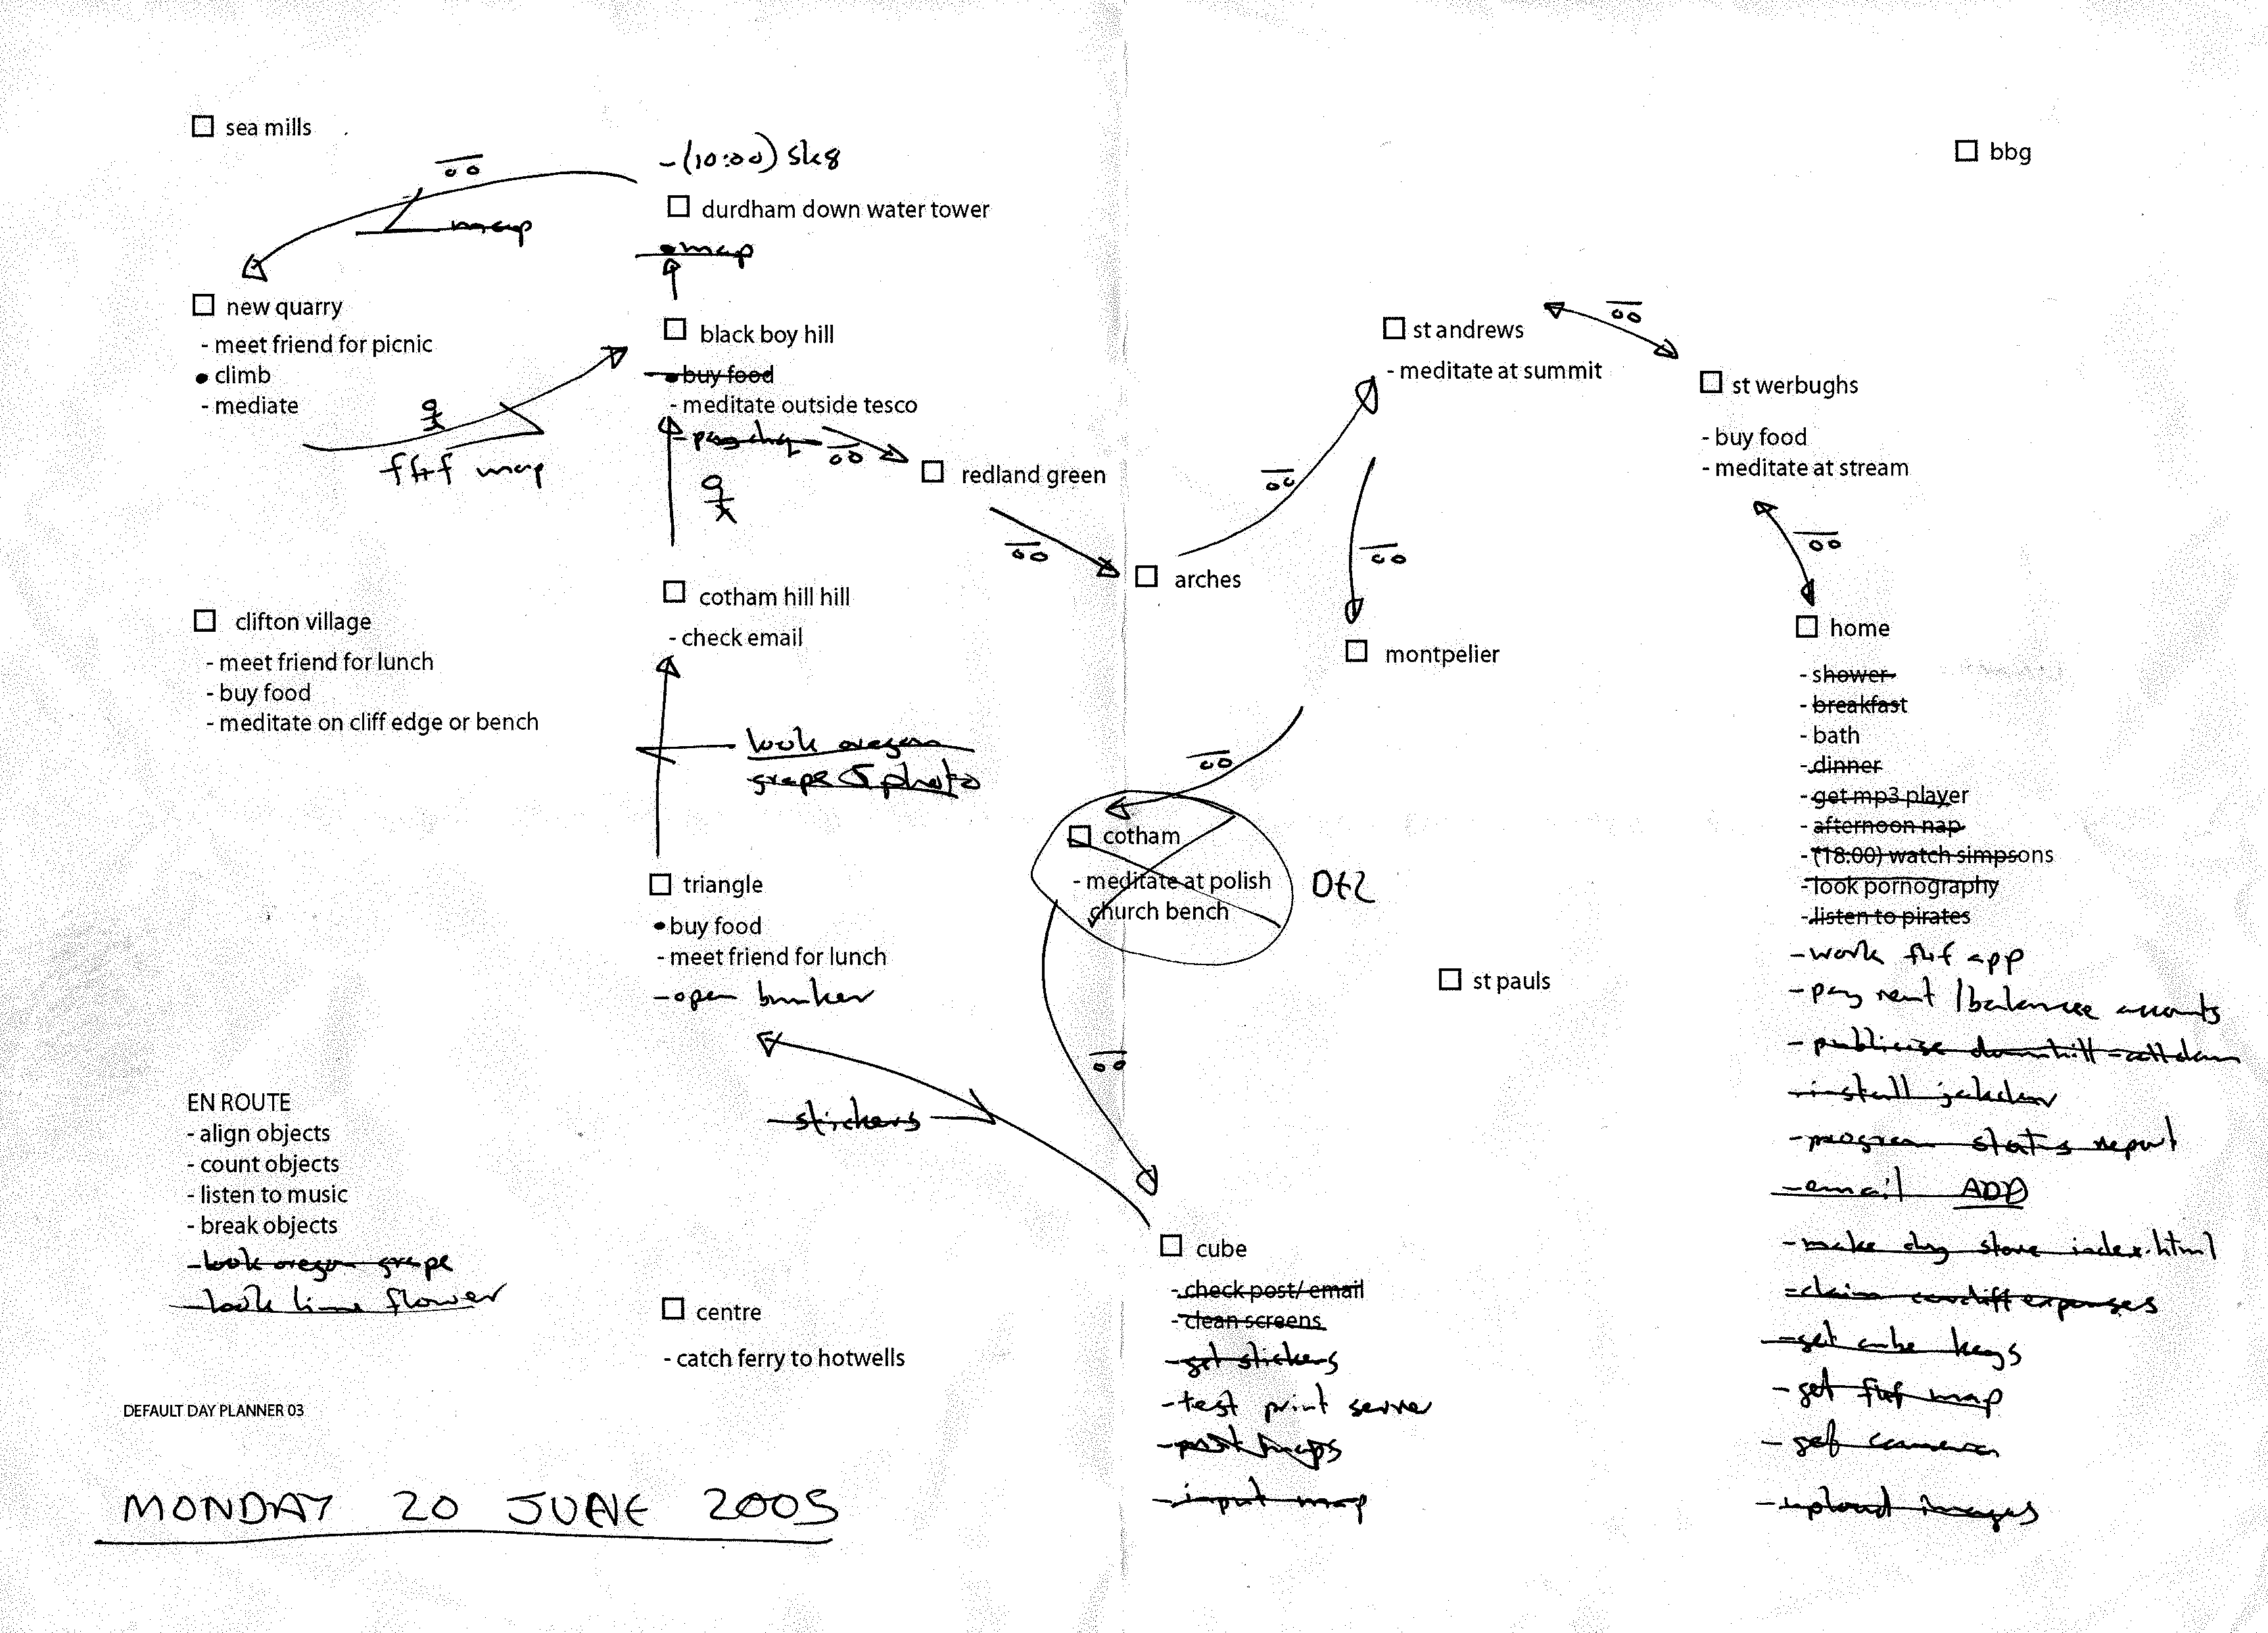 sea mills
- (10:00) sk8
durdham down water tower
map
map
new quarry
- meet friend for picnic
• climb
- mediate
black boy hill
• buy food
- meditate outside tesco
- pay chq
map
redland green
arches
st andrews
- meditate at summit
bbg
st werbughs
- buy food
- meditate at stream
montpelier
clifton village
- meet friend for lunch
- buy food
- meditate on cliff edge or bench
cotham hill hill
- check email
look oregon
grape & photo
cotham
- meditate at polish
church bench
triangle
• buy food
- meet friend for lunch
- open bunker
stickers
st pauls
home
- shower
- breakfast
- bath
- dinner
- get mp3 player
- afternoon nap
- (18:00) watch simpsons
- look pornography
- listen to pirates
- work app
- pay rent / balance accounts
- publicise downhill
- install
- program status report
- email ADD
- make dog store index.html
- claim cardiff expenses
- get cube keys
- get map
- get camera
- upload images
EN ROUTE
- align objects
- count objects
- listen to music
- break objects
- look oregon grape
- look lime flower
centre
- catch ferry to hotwells
cube
- check post/ email
- clean screens
- get stickers
- test print server
- post maps
- input map
DEFAULT DAY PLANNER 03
MONDAY 20 JUNE 2005